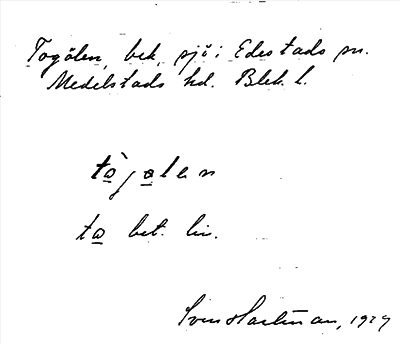 Togölen, bek. sjö i Edestads sn.
Medelstads hd. Blek. l.
tò̱ja̱len
ta̱ bet. lin.
Sven Hartman, 1927